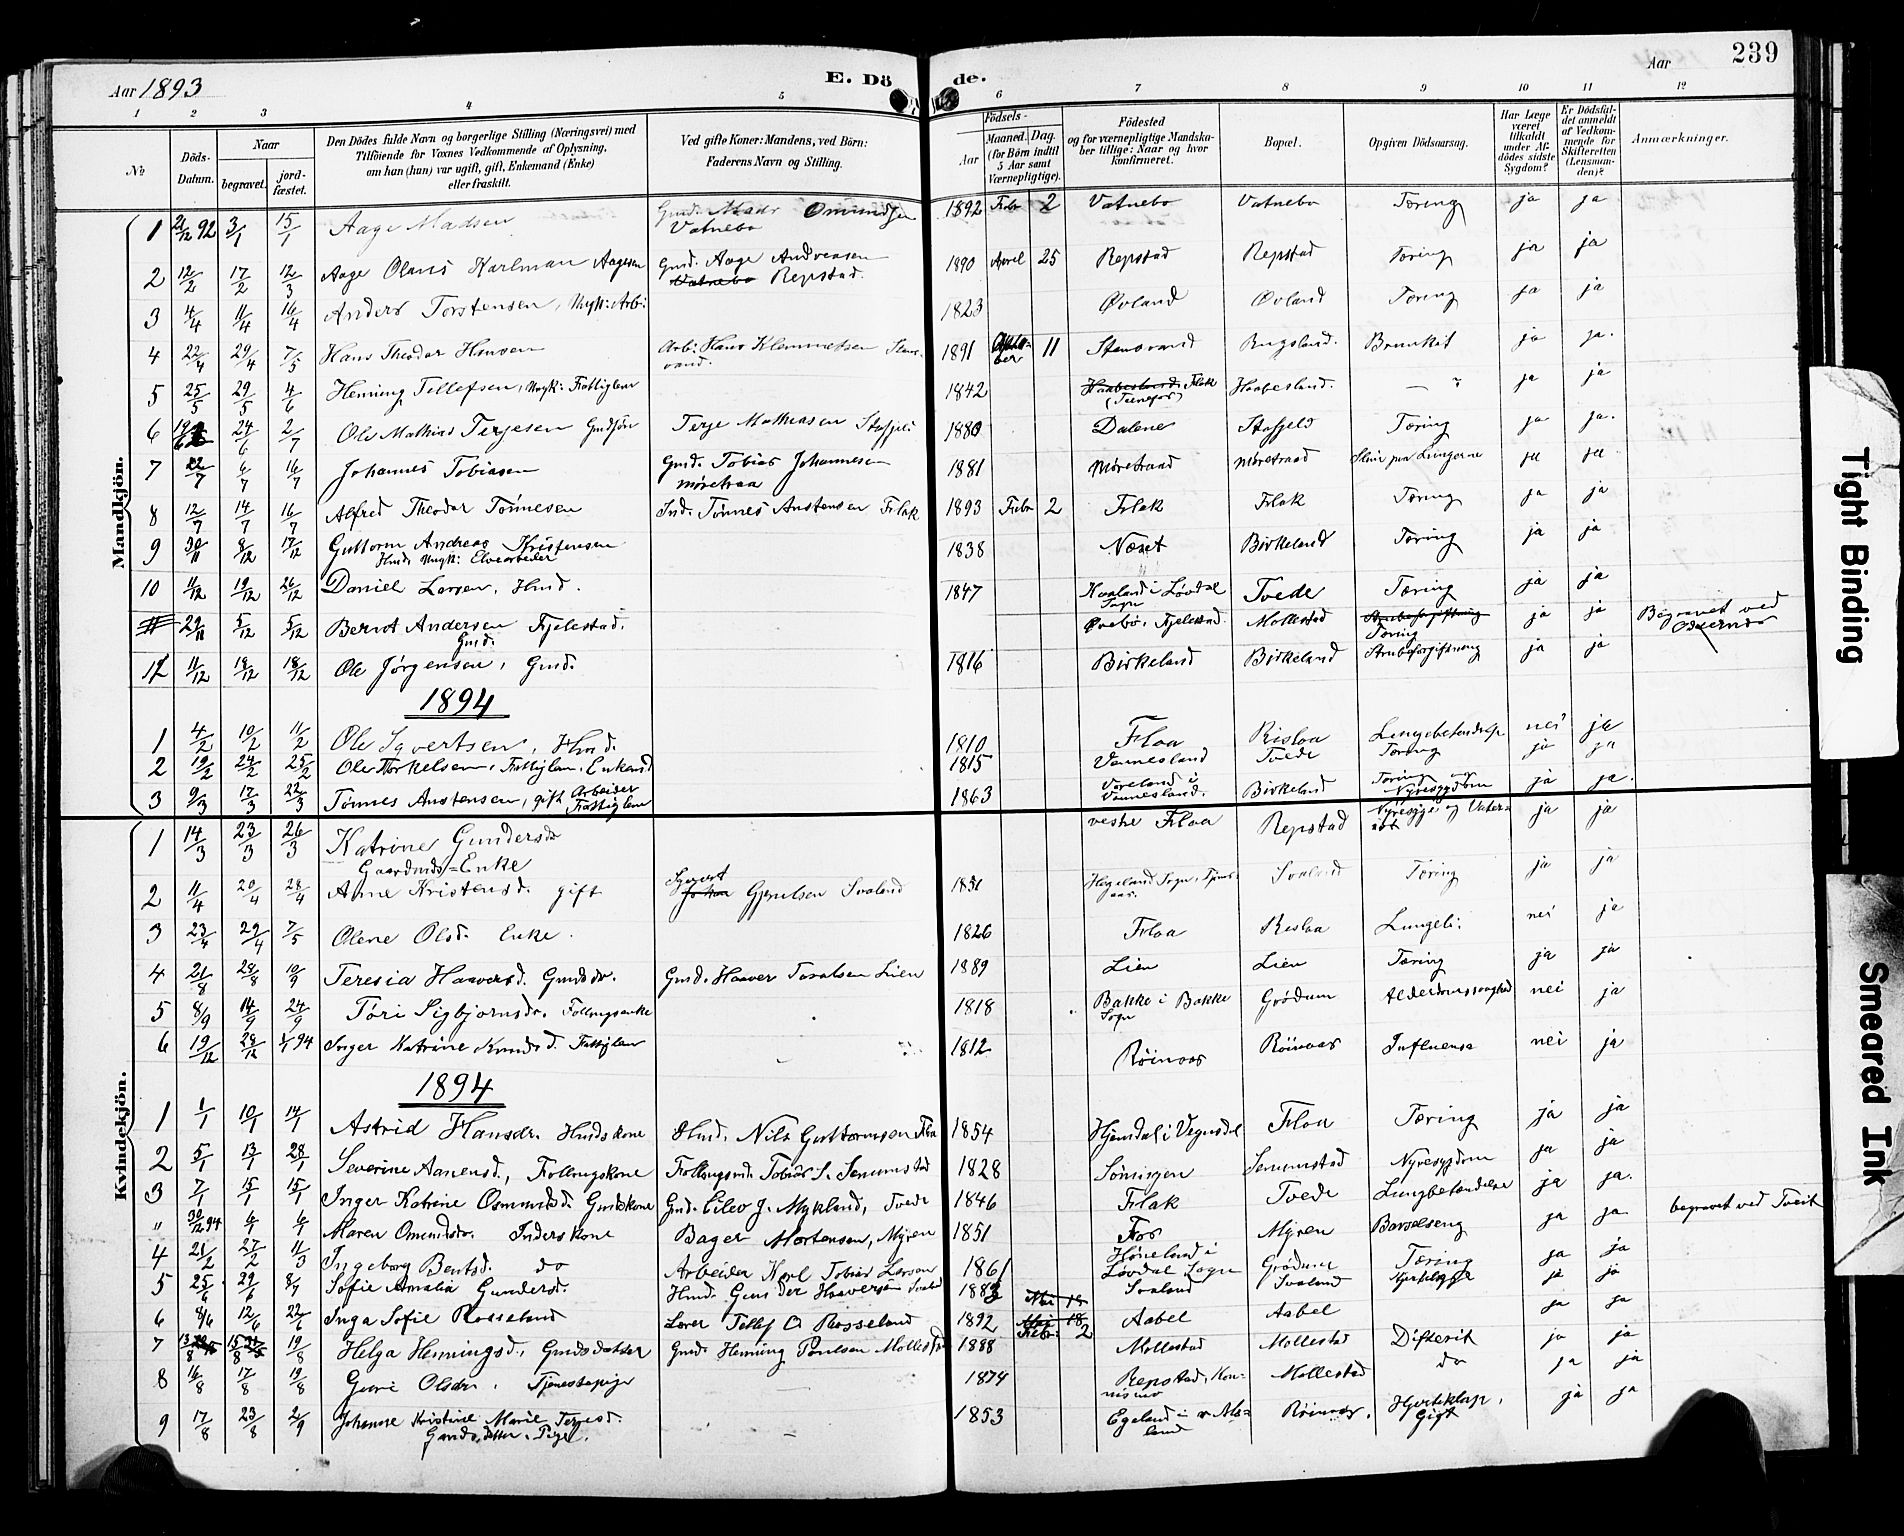 Aar 1893
E. Dö de.
Aar
239
1 2 3 4 5 6 7 8 9 10 11 12
No
Döds-Datum.
Naar
begravet.
jord-fæstet.
Den Dödes fulde Navn og borgerlige Stilling (Næringsvei) med Tilföiende for Voxnes Vedkommende af Oplysning, om han (hun) var ugift, gift, Enkemand (Enke) eller fraskilt.
Ved gifte Koner: Mandens, ved Börn: Faderens Navn og Stilling.
Födsels-
Aar
Maaned. Dag.
(for Börn indtil 5 Aar samt Værnepligtige).
Födested og for værnepligtige Mandskaber tillige: Naar og hvor konfirmeret.
Bopæl.
Opgiven Dödsaarsag.
Har Læge været tilkaldt under Afdödes sidste Sygdom?
Er Dödsfaldet anmeldt af Vedkommende for Skifteretten (Lensmanden)?
Anmærkninger.
Mandkjön.
1 21/12 92 3/1 15/1 Aage Madsen Gmd. Mads Omundsen Vatnebo 1892 Febr 2 Vatnebo Vatnebo Tæring ja ja
2 12/2 17/2 12/3 Aage Olaus Karlman Aagesen Gmd. Aage Andreasen Vatnebo Repstad. 1890 April 25 Repstad Repstad Tæring ja ja
3 4/4 11/4 16/4 Anders Torstensen, Ugk: Arb: 1823 Øvland Øvland Tæring ja ja
4 22/4 29/4 7/5 Hans Theodor Hansen Arb: Hans Klemmetsen Stensvand. 1891 11 Stensvand Rugsland. Bronkit ja ja.
5 25/5 29/5 4/6 Henning Tellefsen, Ungk: Fattiglem 1842 Haabesland Flak Haabesland. — " ja ja
6 19/6 24/6 2/7 Ole Mathias Terjesen Gmdsön Terje Mathiasen Stapjeld 1880 Dalene Stapjeld Tæring ja ja.
7 22/7 16/7 Johannes Tobiasen Gmd. Tobias Johannesen Møretraa 1881 Møretraad Møretraad Sliim paa Lungerne ja ja
8 12/7 14/7 16/7 Alfred Theodor Tönnesen Ind. Tönnes Austensen Flak 1893 Febr 2 Flak Flak Tæring ja ja
9 30/11 8/12 17/12 Guttorm Andreas Kristensen Hmd. Ungk: Elvearbeider 1838 Næset Birkeland Tæring ja ja
10 11/12 19/12 26/12 Daniel Larsen, Hmd. 1847 Haaland i Løvdal Sogn Tvede Tæring ja ja
29/11 5/12 5/12 Bernt Andersen Fjelestad. Gmd. Øvebö, Fjelestad Mollestad Strubeforgiftning Tæring ja ja Begravet ved
11/12 18/12 18/12 Ole Jörgensen, Gmd. 1816 Birkeland Birkeland Strubeforgiftning ja ja
1894
1 4/2 10/2 11/2 Ole Syvertsen, Hmd. 1810 Floa Risloa Lungebetendelse nei ja
2 19/2 24/2 25/2 Ole Torkelsen, Fattiglem, Enkemd 1815 Vannesland Tvede Tæring ja ja
3 9/3 17/3 22/3 Tönnes Austensen, gift Arbeider Fattiglem 1863 Voreland i Vannesland. Birkeland Tæring Nyresygdom ja ja.
Kvindekjön.
1 14/3 23/3 26/3 Katrine Gundersdr Gaardmds=Enke vestre Floa Repstad Nyresyge og Vatersot ja ja
2 11/4 20/4 28/4 Anne Kristensd. gift Syvert Johan Gjerulsen Svaland 1831 Hegeland Sogn, Svaland Tæring ja ja
3 23/4 29/4 7/5 Olene Olsd. Enke. 1826 Floa Risloa Lungeb: nei ja
4 21/8 28/8 10/9 Teresia Haaversd. Gmdsdr. Gmd. Haaver Taraldsen Lien 1889 Lien Lien Tæring ja ja
5 8/9 14/9 24/9 Töri Sigbjornsdr. Follougsenke 1818 Bakke i Bakke Sogn Grödum Alderdomssvaghed nei ja
6 19/12 28/12 94 Inger Katrine Knudsd. Fattiglem 1812 Röinaas Röinaas Influensa nei ja
1894
1 1/1 10/1 14/1 Astrid Hansdr. Hmdskone Hmd. Nils Guttormsen Floa 1854 Hjemdal i Vegusdal Floa Tæring ja ja
2 5/1 13/1 28/1 Severine Aanensd., Follougskone Follougsmd. Tobias S. Senumstad 1828 Sönningen Senumstad Nyresygdom ja ja
3 7/1 15/1 15/1 Inger Katrine Osmundsd. Gmdskone Gmd. Eilev J. Mykland, Tvede 1846 Flak Tvede Lungbetendelse ja ja.
" 30/12 94 6/1 6/1 Maren Omundsdr. Inderskone Bager Mortensen, Myren 1851 Fos Myren Barselseng ja ja. begravet ved Tveit
4 21/2 27/2 11/3 Ingeborg Bentsd. do Arbeider Karl Tobias Larsen 1861 Höneland i Løvdal Sogn Grödum Tæring ja ja
5 25/6 29/6 8/7 Sofie Amalia Gundersd. Hmd. Gunder Haaversen Svaland 1883 Svaland Svaland ja ja
6 8/6 12/6 22/6 Inga Sofie Rosseland Lærer Tellef O Rosseland 1892 Mai 18 Febr: 2 Aabel Aabel ja ja
7 13/8 15/8 19/8 Helga Henningsd., Gmdsdatter Gmd. Henning Poulsen Mollestad 1888 Mollestad Mollestad Difterit ja ja
8 16/8 17/8 19/8 Gurie Olsdr. Tjenestepige — 1874 Repstad, Mollestad do ja ja
9 17/8 23/8 2/9 Johanne Kristine Marie Terjesd. Gmdsdatter, Pige. — 1853 Egeland i Röinaas, Hjerteklap, Gigt ja ja
Tight Binding
Smeared Ink